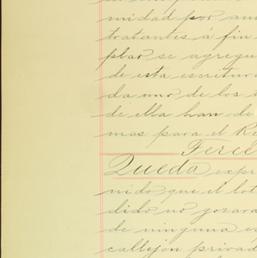 midad por am
tratantes á fin
plar se agregu
de esta escritur
da uno de los
de ella han de
mas para el Re
Terce
Queda expr
nido que el lot
dido no gozará
de ninguna es
callejon privad